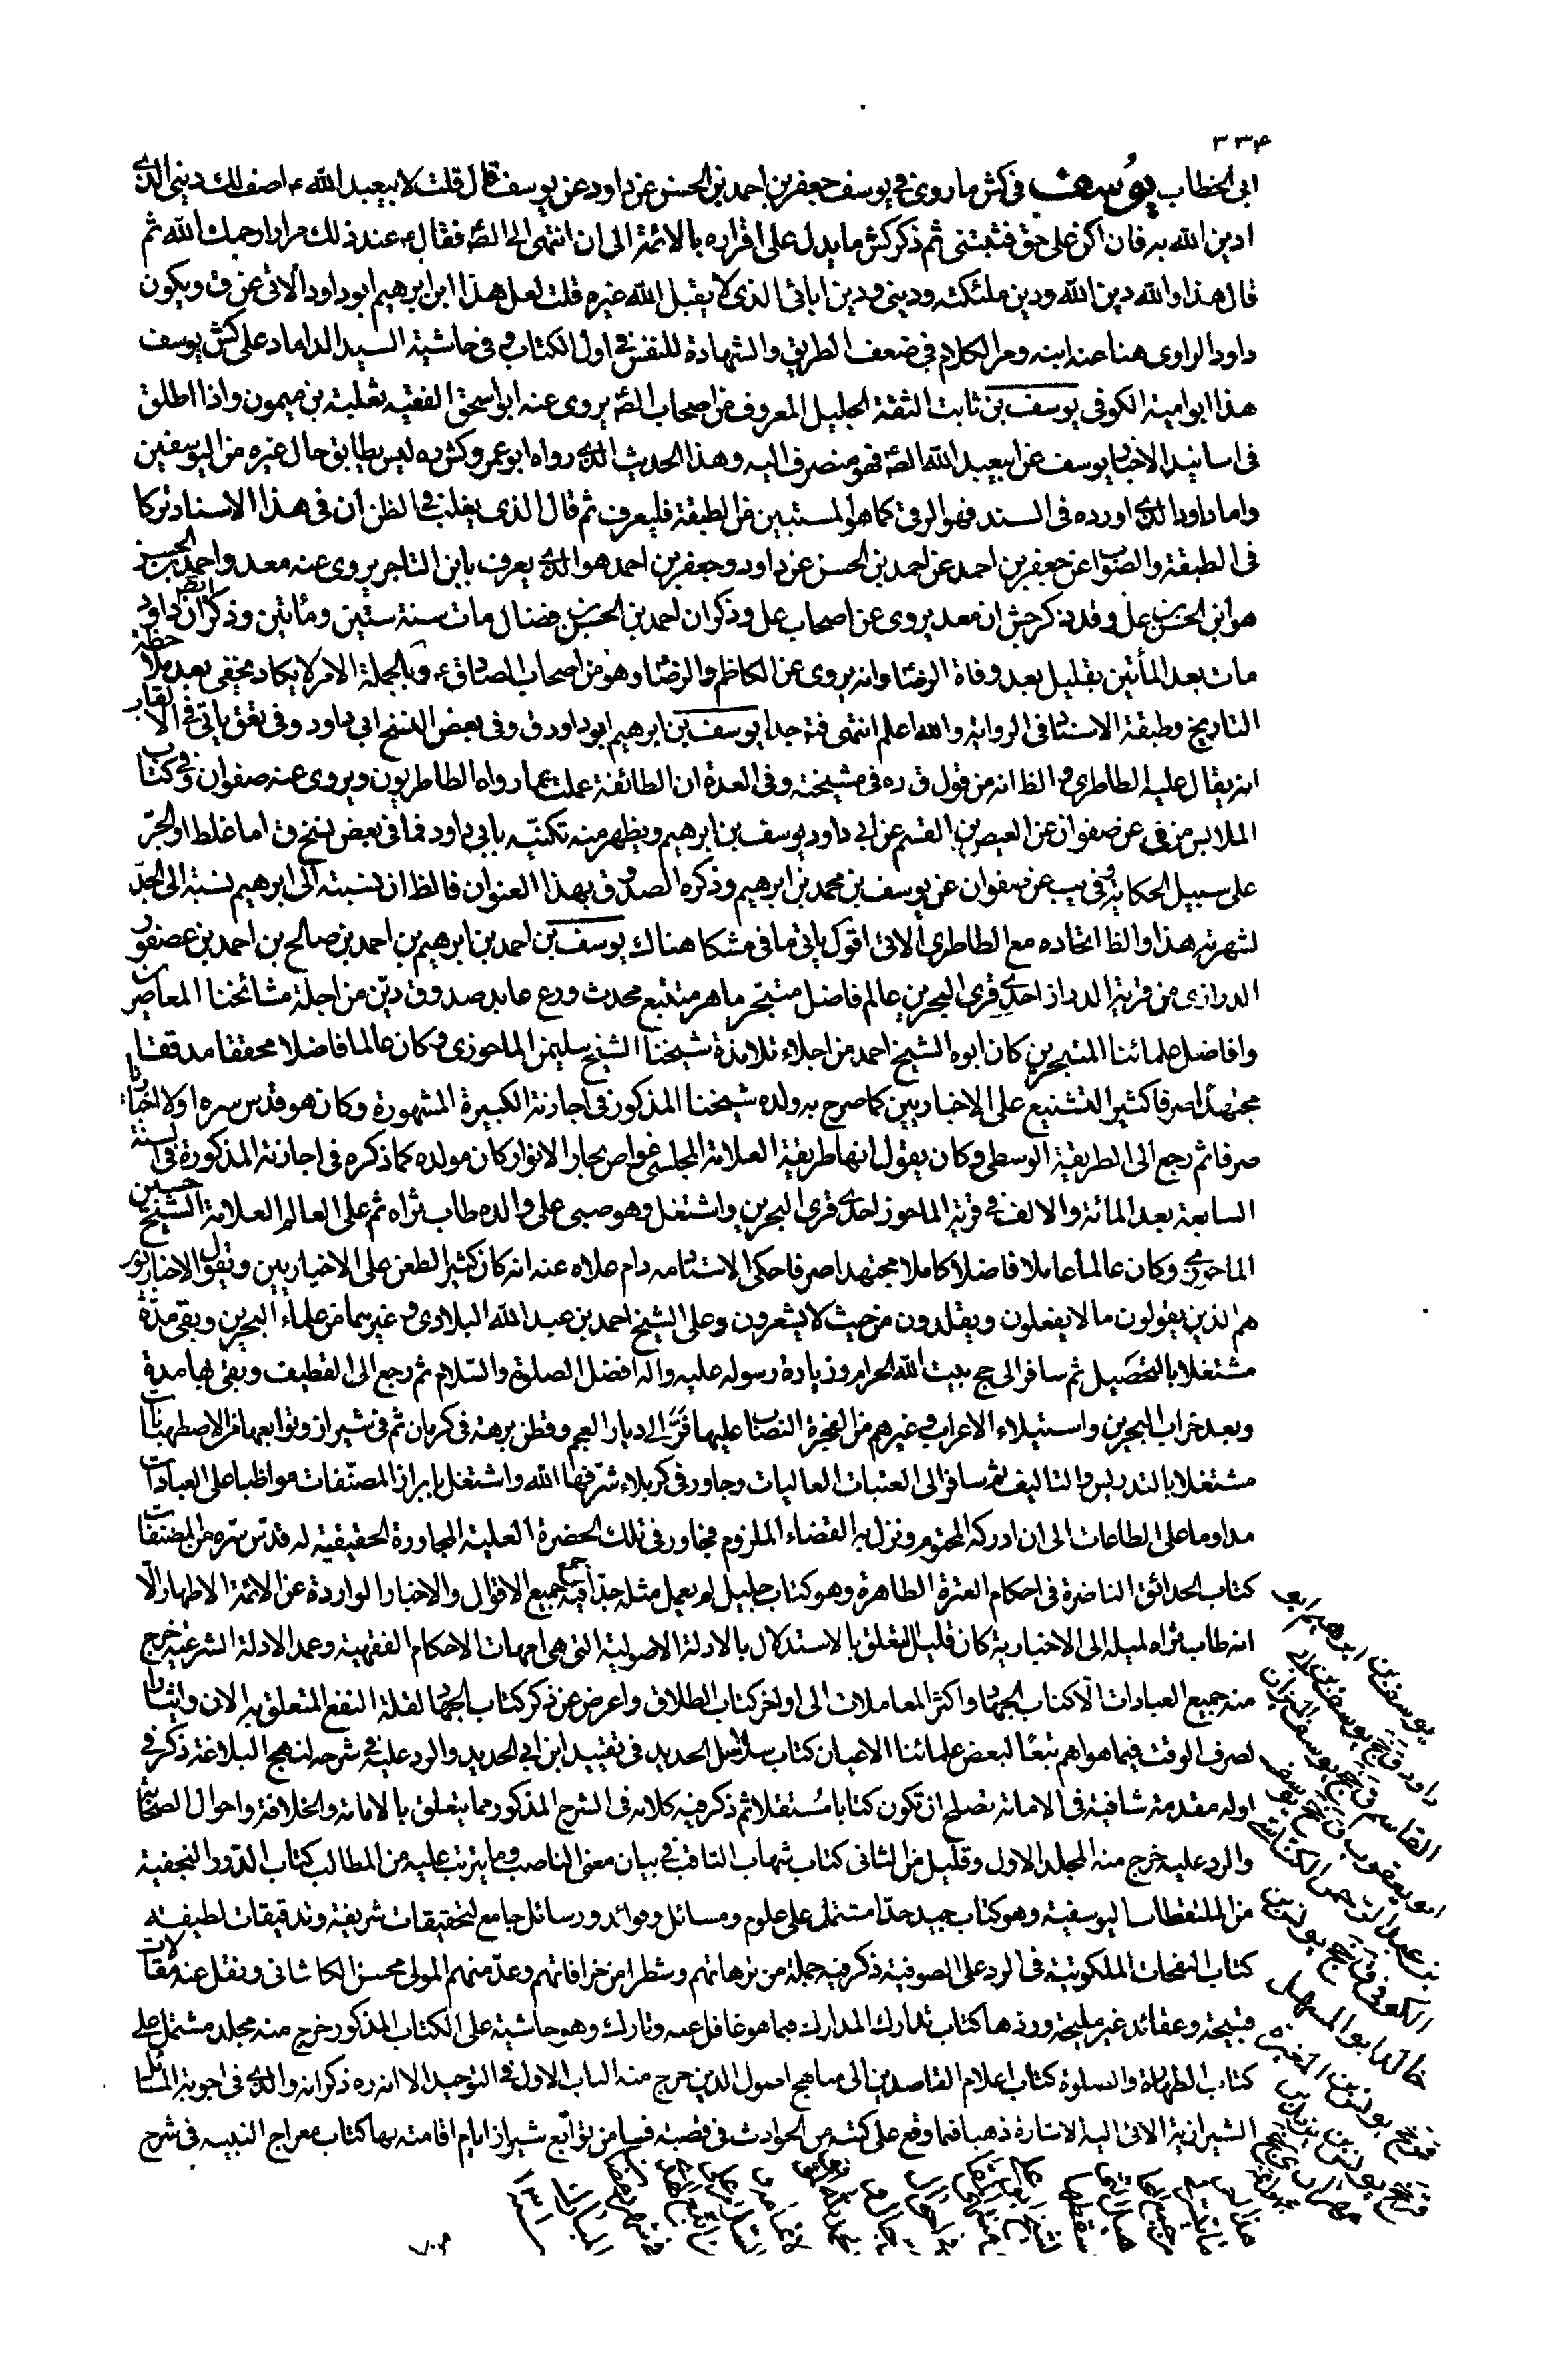 ٣٣۴
ابى الخطاب يوسف فى كش ما روى فى يوسف جعفر بن احمد بن الحسن عن داود عن يوسف قال قلت لابيعبد الله ع اصف لك دينى الذى
ادين الله به فان اكن على حق فثبتنى ثم ذكر كش ما يدل على اقراره بالائمة الى ان انتهى الى الصّ فقال ع عند ذلك مرارا رحمك الله ثم
قال هذا والله دين الله ودين ملئكته ودينى ودين ابائى الذى لا يقبل الله غيره قلت لعل هذا ابن ابرهيم ابو داود الاتى عن ق ويكون
داود الراوى هنا عنه ابنه ومر الكلام فى ضعف الطريق والشهادة للنفس فى اول الكتاب و فى حاشية السيد الداماد على كش يوسف
هذا ابو امية الكوفى يوسف بن ثابت الثقة الجليل المعروف من اصحاب الصّ يروى عنه ابو اسحق الفقيه ثعلبة بن ميمون واذا اطلق
فى اسانيد الاخبار يوسف عن ابيعبد الله الصّ فهو منصرف اليه وهذا الحديث الذى رواه ابو عمرو كش ره ليس يطابق حال غيره من اليوسفين
واما داود الذى اورده فى السند فهو الرقى كما هو المستبين من الطبقة فليعرف ثم قال الذى يغلب فى الظن ان فى هذا الاسناد تركا
فى الطبقة والصواب عن جعفر بن احمد عن احمد بن الحسن عن داود وجعفر بن احمد هو الذى يعرف بابن التاجر يروى عنه معد واحمد بن الحسن
هو ابن الحسن بن عل وقد ذكر جش ان معد يروى عن اصحاب عل وذكر ان احمد بن الحسن بن فضال مات سنة ستين ومأتين وذكر ايضا ان داود
مات بعد المأتين بقليل بعد وفاة الرضا وانه يروى عن الكاظم والرضا وهو من اصحاب الصادق ع وبالجملة الامر لا يكاد يخفى بعد ملاحظة
التاريخ وطبقة الاسناد فى الرواية والله اعلم انتهى فته جدا يوسف بن ابرهيم ابو داود ق وفى بعض النسخ ابى داود وفى تعق ياتى فى الالقاب
انه يقال عليه الطاطرى و الظ انه من قول ق ره فى مشيخته وفى العدة ان الطائفة عملت بما رواه الطاطريون ويروى عنه صفوان وفى كتاب
الملابس من فى عن صفوان عن العيص بن القسم عن ابى داود يوسف بن ابرهيم ويظهر منه تكنيه بابى داود فما فى بعض نسخ ق اما غلط او الجرّ
على سبيل الحكاية وفى يب عن صفوان عن يوسف بن محمد بن ابرهيم وذكره الصدوق بهذا العنوان فالظ ان نسبته الى ابرهيم نسبة الى الجدّ
لشهرته هذا والظ اتحاده مع الطاطرى الاتى اقول ياتى ما فى مشكا هناك يوسف بن احمد بن ابرهيم بن احمد بن صالح بن احمد بن عصفور
الدرازى من قرية الدراز احدى قرى البحرين عالم فاضل متبحّر ماهر متتبع محدث ورع عابد صدوق ديّن من اجلة مشائخنا المعاصرين
وافاضل علمائنا المتبحرين كان ابوه الشيخ احمد من اجلاء تلامذة شيخنا الشيخ سليمن الماحوزى و كان عالما فاضلا محققا مدققا
مجتهدا صرفا كثير التشنيع على الاخباريين كما صرح به ولده شيخنا المذكور فى اجازته الكبيرة المشهورة وكان هو قدس سره اولا اخباريا
صرفا ثم رجع الى الطريقة الوسطى وكان يقول انها طريقة العلامة المجلسى غواص بحار الانوار كان مولده كما ذكره فى اجازته المذكورة فى السنة
السابعة بعد المائة والالف فى قرية الماحوز احدى قرى البحرين واشتغل وهو صبى على والده طاب ثراه ثم على العالم العلامة الشيخ حسين
الماحوزى وكان عالما عاملا فاضلا كاملا مجتهدا صرفا حكى الاستاد دام علاه عنه انه كان كثير الطعن على الاخباريين ويقول الاخباريون
هم الذين يقولون ما لا يفعلون ويقلدون من حيث لا يشعرون وعلى الشيخ احمد بن عبد الله البلادى و غيرهما من علماء البحرين وبقى مدّة
مشتغلا بالتحصيل ثم سافر الى حج بيت الله الحرام وزيارة رسوله عليه واله افضل الصلوة والسّلام ثم رجع الى القطيف وبقى بها مدة
وبعد خراب البحرين واستيلاء الاعراب وغيرهم من الفجرة النصاب عليها فرّ الى ديار العجم وقطن برهة فى كرمان ثم فى شيراز وتوابعها من الاصطهبانات
مشتغلا بالتدريس والتاليف ثم سافر الى العتبات العاليات وجاور فى كربلاء شرّفها الله واشتغل بابراز المصنّفات مواظبا على العبادات
مداوما على الطاعات الى ان ادركه المحتوم ونزل به القضاء الملزوم فجاور فى تلك الحضرة العلية المجاورة الحقيقية له قدّس سرّه من المصنفات
كتاب الحدائق الناضرة فى احكام العترة الطاهرة وهو كتاب جليل لم يعمل مثله جدّا جمع فيه جميع الاقوال والاخبار الواردة عن الائمة الاطهار الّا
انه طاب ثراه لميله الى الاخبارية كان قليل التعلق بالاستدلال بالادلة الاصولية التى هى امهات الاحكام الفقهية وعمد الادلة الشرعية خرج
منه جميع العبادات الّا كتاب الجهاد واكثر المعاملات الى اواخر كتاب الطلاق واعرض عن ذكر كتاب الجهاد لقلة النفع المتعلق به الان وايثارا
لصرف الوقت فيما هو اهم تبعًا لبعض علمائنا الاعيان كتاب سلاسل الحديد فى تقييد ابن ابى الحديد والرد عليه فى شرحه لنهج البلاغة ذكر فى
اوله مقدمة شافية فى الامامة تصلح ان تكون كتابا مُستقلا ثم ذكر فيه كلامه فى الشرح المذكور مما يتعلق بالامامة والخلافة واحوال الصحابة
والرد عليه خرج منه المجلد الاول وقليل من الثانى كتاب شهاب الثاقب فى بيان معنى الناصب وما يترتب عليه من المطالب كتاب الدّرر النجفية
من الملتقطات اليوسفية وهو كتاب جيد جدّا مشتمل على علوم ومسائل وفوائد ورسائل جامع لتحقيقات شريفة وتدقيقات لطيفة
كتاب النفحات الملكوتية فى الرد على الصوفية ذكر فيه جملة من ترهاتهم وشطرا من خرافاتهم وعدّ منهم المولى محسن الكاشانى ونقل عنه مقالات
قبيحة وعقائد غير مليحة وردها كتاب تدارك المدارك فيما هو غافل عنه وتارك وهو حاشية على الكتاب المذكور خرج منه مجلد مشتمل على
كتاب الطهارة والصلوة كتاب اعلام القاصدين الى مناهج اصول الدين خرج منه الباب الاول فى التوحيد الا انه ره ذكر انه والذى فى اجوبة المسائل
الشيرازية الاتى اليه الاشارة ذهبا فيما وقع على كتبه من الحوادث فى قصبة فسا من توابع شيراز ايام اقامته بها كتاب معراج النبيه فى شرح
يوسف بن ابرهيم ابو
داود ق جخ يوسف بن